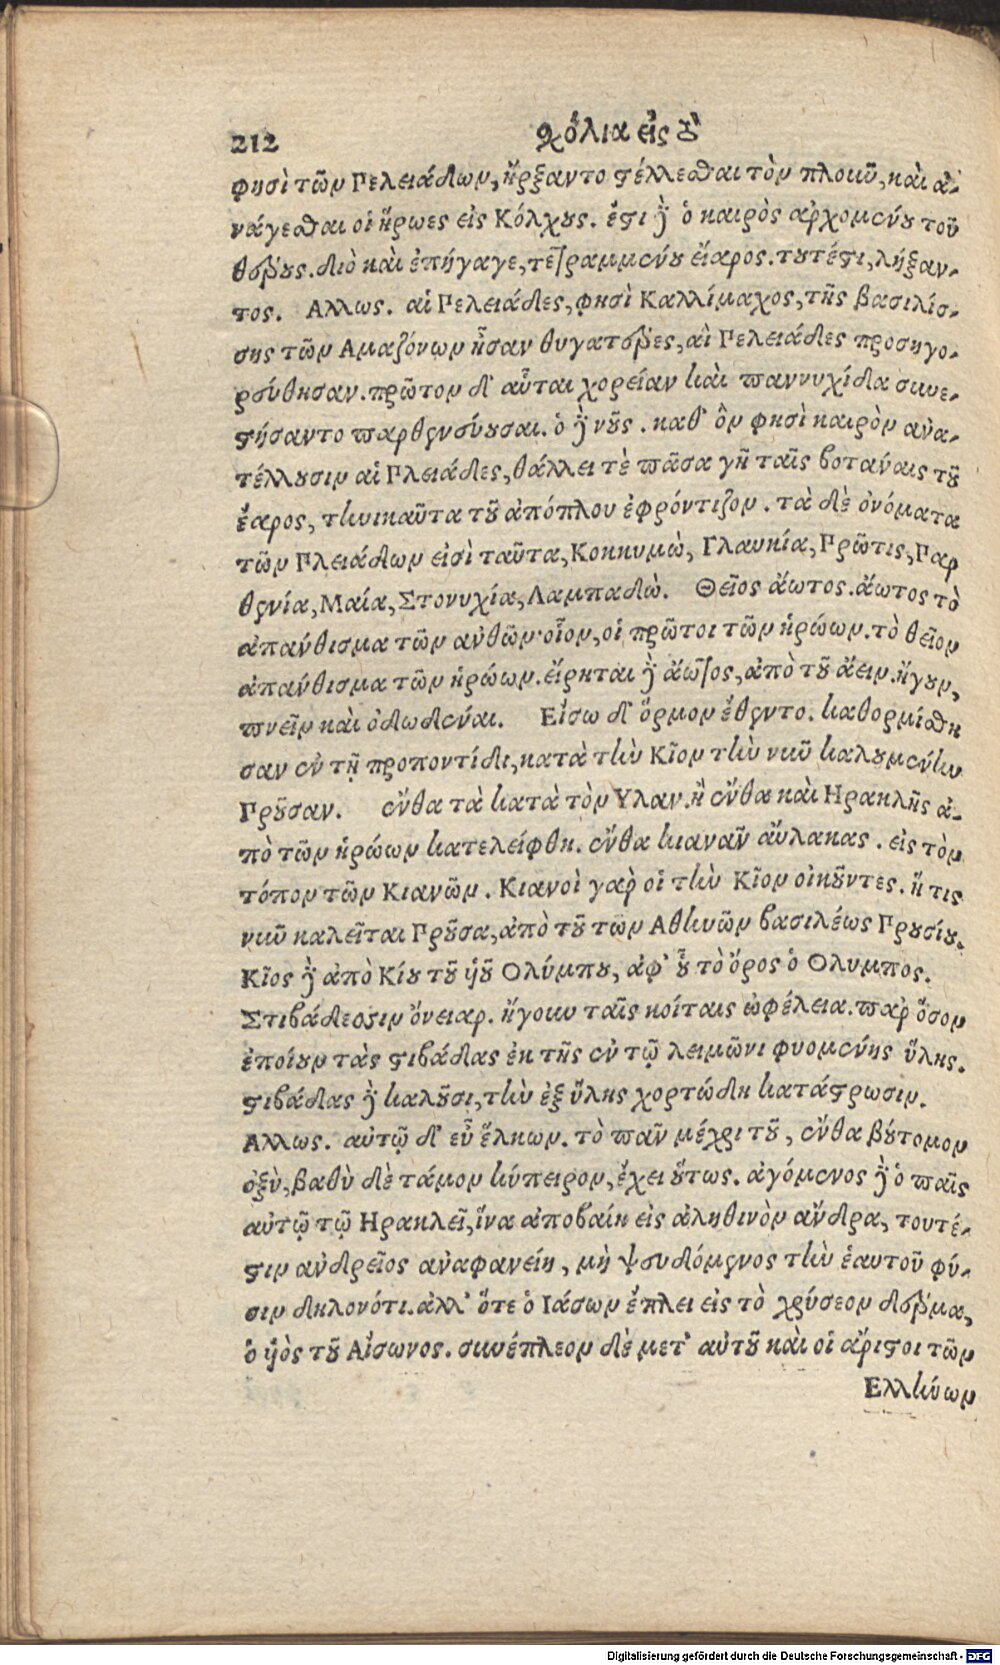 212 σχόλια εἰς τὸ
φησὶ τῶν Πελειάδων, ἤρξαντο στέλλεσθαι τὸν πλοῦν, καὶ ἀ-
νάγεσθαι οἱ ἥρωες εἰς Κόλχους. ἔστι δὲ ὁ καιρὸς ἀρχομένου τοῦ
θέρους. διὸ καὶ ἐπήγαγε, τετραμμένου εἴαρος. τουτέστι, λήξαν-
τος. Αλλως. αἱ Πελειάδες, φησὶ Καλλίμαχος, τῆς βασιλίσ-
σης τῶν Αμαζόνων ἦσαν θυγατέρες, αἳ Πελειάδες προσηγο-
ρεύθησαν. πρῶτον δ' αὗται χορείαν καὶ παννυχίδα συνε-
στήσαντο παρθενεύουσαι. ὁ δὲ νοῦς. καθ' ὃν φησὶ καιρὸν ἀνα-
τέλλουσιν αἱ Πλειάδες, θάλλει τὲ πᾶσα γῆ ταῖς βοτάναις τοῦ
ἔαρος, τηνικαῦτα τοῦ ἀπόπλου ἐφρόντιζον. τὰ δὲ ὀνόματα
τῶν Πλειάδων εἰσὶ ταῦτα, Κοκκυμὼ, Γλαυκία, Πρῶτις, Παρ
θενία, Μαία, Στονυχία, Λαμπαδὼ. Θεῖος ἄωτος. ἄωτος τὸ
ἀπάνθισμα τῶν ἀνθῶν· οἷον, οἱ πρῶτοι τῶν ἡρώων. τὸ θεῖον
ἀπάνθισμα τῶν ἡρώων. εἴρηται δὲ ἄωτος, ἀπὸ τοῦ ἄειν. ἤγουν,
πνεῖν καὶ ὀδωδέναι. Εἴσω δ' ὅρμον ἔθεντο. καθορμίσθη
σαν ἐν τῇ προποντίδι, κατὰ τὴν Κῖον τὴν νῦν καλουμένην
Προῦσαν. ἔνθα τὰ κατὰ τὸν Υλαν. ἢ ἔνθα καὶ Ηρακλῆς ἀ-
πὸ τῶν ἡρώων κατελείφθη. ἔνθα κιανᾶν αὔλακας. εἰς τὸν
τόπον τῶν Κιανῶν. Κιανοὶ γὰρ οἱ τὴν Κῖον οἰκοῦντες. ἥ τις
νῦν καλεῖται Προῦσα, ἀπὸ τοῦ τῶν Αθηνῶν βασιλέως Προυσίου.
Κῖος δὲ ἀπὸ Κίου τοῦ υἱοῦ Ολύμπου, ἀφ' οὗ τὸ ὄρος ὁ Ολυμπος.
Στιβάδεσσιν ὄνειαρ. ἤγουν ταῖς κοίταις ὠφέλεια. παρ' ὅσον
ἐποίουν τὰς στιβάδας ἐκ τῆς ἐν τῷ λειμῶνι φυομένης ὕλης.
στιβάδας δὲ καλοῦσι, τὴν ἐξ ὕλης χορτώδη κατάστρωσιν.
Αλλως. αὐτῷ δ' εὖ ἕλκων. τὸ πᾶν μέχρι τοῦ, ἔνθα βούτομον
ὀξὺ, βαθὺ δὲ τάμον κύπειρον, ἔχει οὕτως. ἀγόμενος δὲ ὁ παῖς
αὐτῷ τῷ Ηρακλεῖ, ἵνα ἀποβαίη εἰς ἀληθινὸν ἄνδρα, τουτέ-
στιν ἀνδρεῖος ἀναφανείη, μὴ ψευδόμενος τὴν ἑαυτοῦ φύ-
σιν δηλονότι. ἀλλ' ὅτε ὁ Ιάσων ἔπλει εἰς τὸ χρύσεον δέρμα,
ὁ υἱὸς τοῦ Αἴσωνος. συνέπλεον δὲ μετ' αὐτοῦ καὶ οἱ ἄριστοι τῶν
Ελλήνων
Digitalisierung gefördert durch die Deutsche Forschungsgemeinschaft - DFG